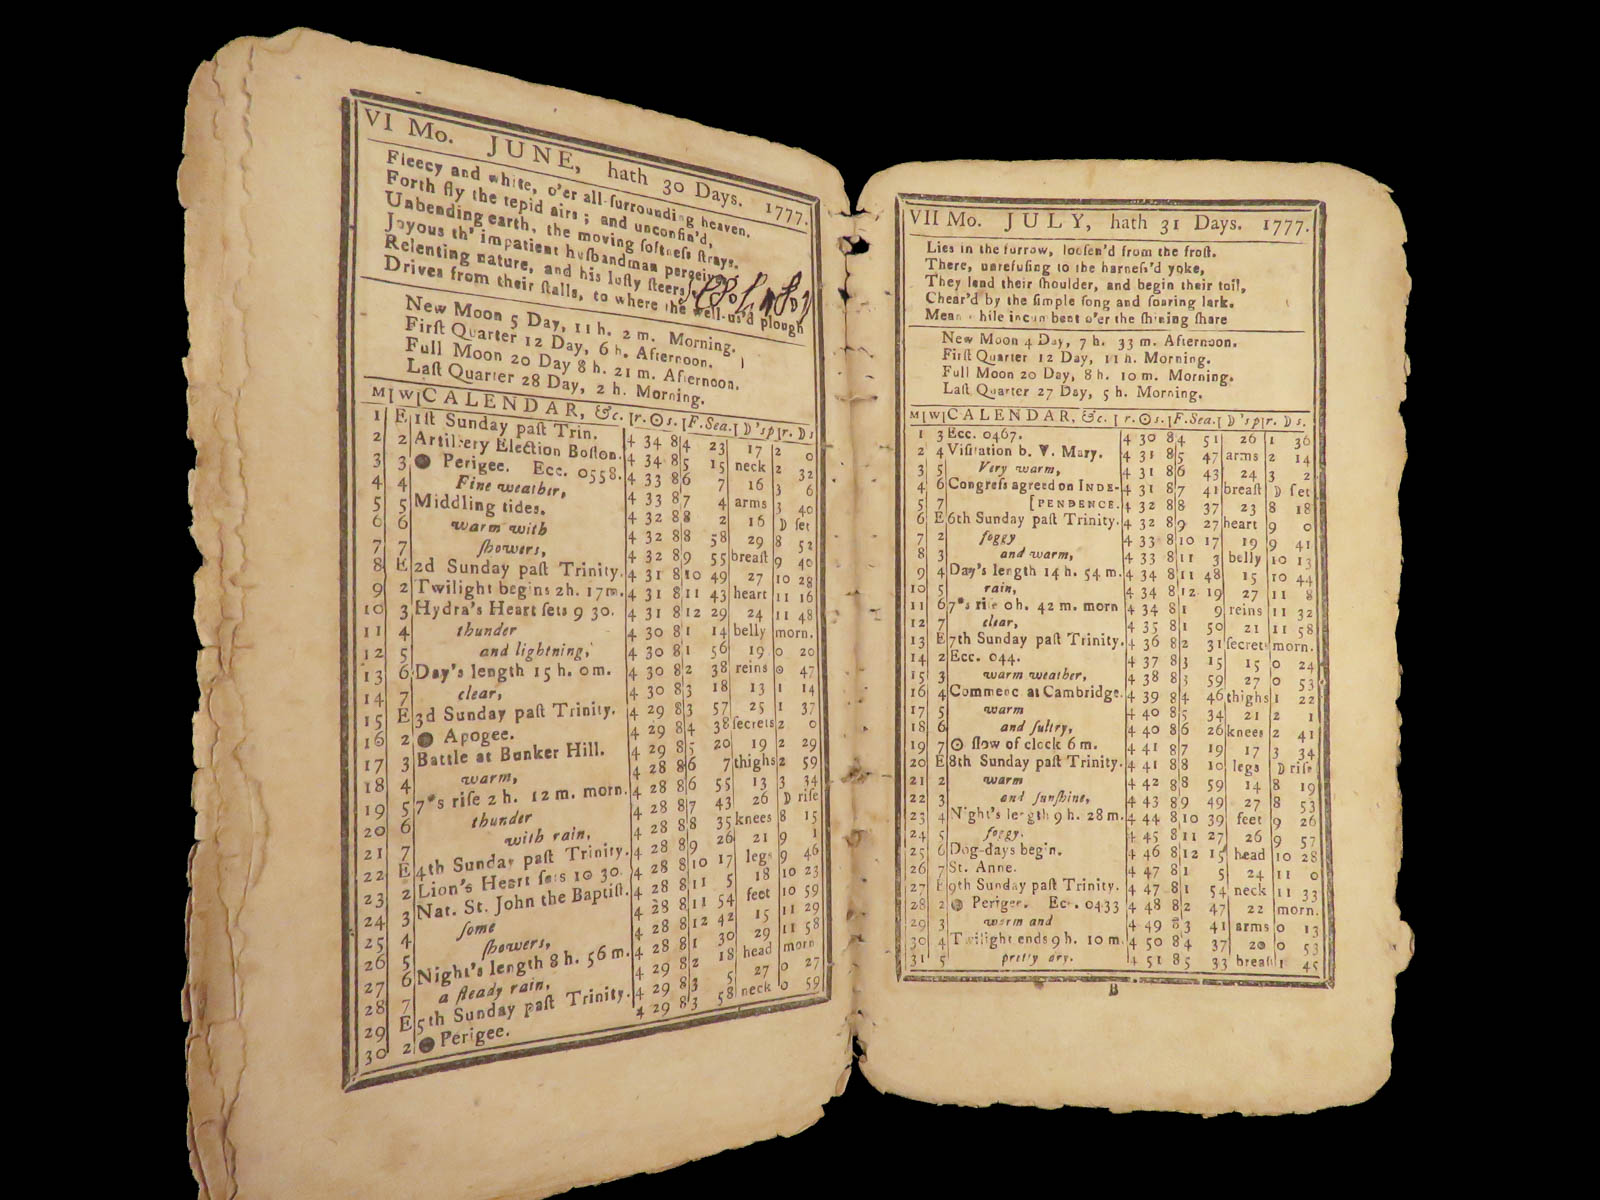 VI Mo. JUNE, hath 30 Days. 1777.
Fleecy and white, o'er all-surrounding heaven.
Forth fly the tepid airs; and unconfin'd,
Unbending earth, the moving ſoftneſs ſtrays.
Joyous th' impatient huſbandman perceives
Relenting nature, and his luſty ſteers
Drives from their ſtalls, to where the well-us'd plough
New Moon 5 Day, 11 h. 2 m. Morning.
Firſt Quarter 12 Day, 6 h. Afternoon.
Full Moon 20 Day 8 h. 21 m. Afternoon.
Laſt Quarter 28 Day, 2 h. Morning.
M W CALENDAR, &c. r. ☉ s. F. Sea. ☽'s p r. ☽ s
1 E 1ſt Sunday paſt Trin. 4 34 8 4 23 17 2 0
2 2 Artillery Election Boſton. 4 34 8 5 15 neck 2 32
3 3 ● Perigee. Ecc. 0558. 4 33 8 6 7 16 3 6
4 4 Fine weather, 4 33 8 7 4 arms 3 40
5 5 Middling tides. 4 32 8 8 2 16 ☽ ſet
6 6 warm with 4 32 8 8 58 29 8 52
7 7 ſhowers, 4 32 8 9 55 breaſt 9 40
8 E 2d Sunday paſt Trinity. 4 31 8 10 49 27 10 28
9 2 Twilight begins 2h. 17m. 4 31 8 11 43 heart 11 16
10 3 Hydra's Heart ſets 9 30. 4 31 8 12 29 24 11 48
11 4 thunder 4 30 8 1 14 belly morn.
12 5 and lightning, 4 30 8 1 56 19 0 20
13 6 Day's length 15 h. 0m. 4 30 8 2 38 reins 0 47
14 7 clear, 4 30 8 3 18 13 1 14
15 E 3d Sunday paſt Trinity. 4 29 8 3 57 25 1 37
16 2 ● Apogee. 4 29 8 4 38 ſecrets 2 0
17 3 Battle at Bunker Hill. 4 29 8 5 20 19 2 29
18 4 warm, 4 28 8 6 7 thighs 2 59
19 5 7*s riſe 2 h. 12 m. morn. 4 28 8 6 55 13 3 34
20 6 thunder 4 28 8 7 43 26 ☽ riſe
21 7 with rain, 4 28 8 8 35 knees 8 15
22 E 4th Sunday paſt Trinity. 4 28 8 9 26 21 9 1
23 2 Lion's Heart ſets 10 30. 4 28 8 10 17 legs 9 46
24 3 Nat. St. John the Baptiſt. 4 28 8 11 5 18 10 23
25 4 ſome 4 28 8 11 54 feet 10 59
26 5 ſhowers, 4 28 8 12 42 15 11 29
27 6 Night's length 8 h. 56 m. 4 28 8 1 30 29 11 58
28 7 a ſteady rain, 4 29 8 2 18 head morn
29 E 5th Sunday paſt Trinity. 4 29 8 3 5 27 0 27
30 2 ● Perigee. 4 29 8 3 58 neck 0 59
VII Mo. JULY, hath 31 Days. 1777.
Lies in the furrow, looſen'd from the froſt.
There, unrefuſing to the harneſs'd yoke,
They lend their ſhoulder, and begin their toil,
Chear'd by the ſimple ſong and ſoaring lark.
Mean while incumbent o'er the ſhining ſhare
New Moon 4 Day, 7 h. 33 m. Afternoon.
Firſt Quarter 12 Day, 11 h. Morning.
Full Moon 20 Day, 8 h. 10 m. Morning.
Laſt Quarter 27 Day, 5 h. Morning.
M W CALENDAR, &c. r. ☉ s. F. Sea. ☽'s p r. ☽ s.
1 3 Ecc. 0467. 4 30 8 4 51 26 1 36
2 4 Viſitation b. V. Mary. 4 31 8 5 47 arms 2 14
3 5 Very warm, 4 31 8 6 43 24 3 2
4 6 Congreſs agreed on INDE- 4 31 8 7 41 breaſt ☽ ſet
5 7 [PENDENCE. 4 32 8 8 37 23 8 18
6 E 6th Sunday paſt Trinity. 4 32 8 9 27 heart 9 0
7 2 foggy 4 33 8 10 17 19 9 41
8 3 and warm, 4 33 8 11 3 belly 10 13
9 4 Day's length 14 h. 54 m. 4 34 8 11 48 15 10 44
10 5 rain, 4 34 8 12 19 27 11 8
11 6 7*s riſe 0h. 42 m. morn 4 34 8 1 9 reins 11 32
12 7 clear, 4 35 8 1 50 21 11 58
13 E 7th Sunday paſt Trinity. 4 36 8 2 31 ſecrets morn.
14 2 Ecc. 044. 4 37 8 3 15 15 0 24
15 3 warm weather, 4 38 8 3 59 27 0 53
16 4 Commenc at Cambridge. 4 39 8 4 46 thighs 1 22
17 5 warm 4 40 8 5 34 21 2 1
18 6 and ſultry, 4 40 8 6 26 knees 2 41
19 7 ☉ ſlow of clock 6 m. 4 41 8 7 19 17 3 34
20 E 8th Sunday paſt Trinity. 4 41 8 8 10 legs ☽ riſe
21 2 warm 4 42 8 8 59 14 8 19
22 3 and ſunſhine, 4 43 8 9 49 27 8 53
23 4 Night's length 9 h. 28 m. 4 44 8 10 39 feet 9 26
24 5 foggy. 4 45 8 11 27 26 9 57
25 6 Dog-days begin. 4 46 8 12 15 head 10 28
26 7 St. Anne. 4 47 8 1 5 24 11 0
27 E 9th Sunday paſt Trinity. 4 47 8 1 54 neck 11 33
28 2 ● Perigee. Ecc. 0433 4 48 8 2 47 22 morn.
29 3 warm and 4 49 8 3 41 arms 0 13
30 4 Twilight ends 9 h. 10 m. 4 50 8 4 37 20 0 53
31 5 pretty dry. 4 51 8 5 33 breaſt 1 45
B